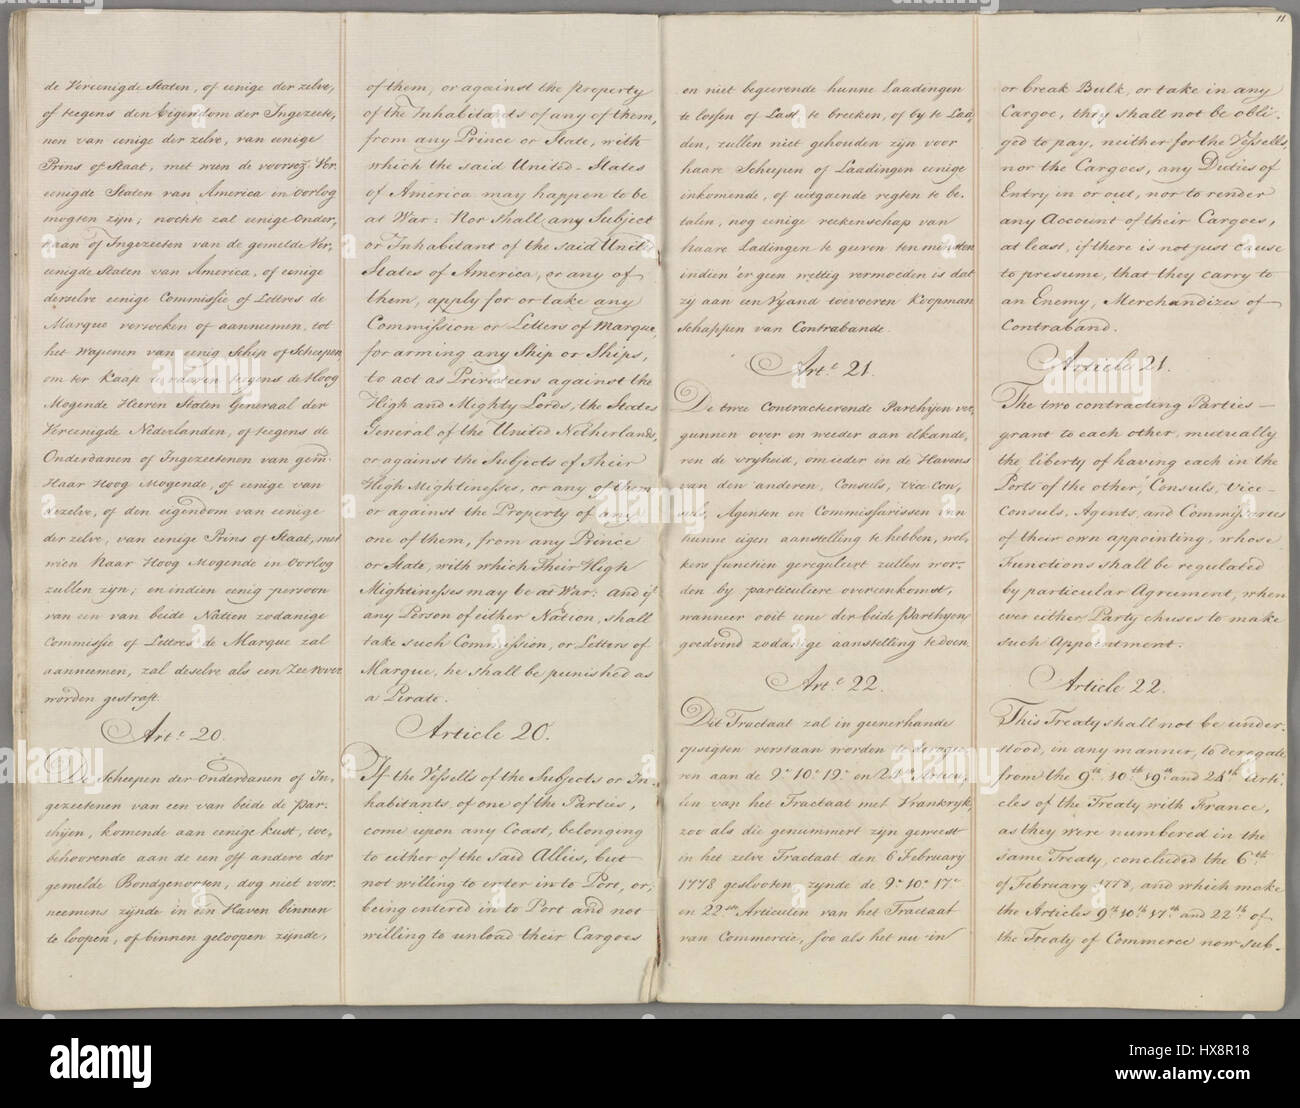 11
de Vereenigde Staten, of eenige der zelve,
of teegens den Eigendom der Ingezeete,
nen van eenige der zelve, van eenige
Prins of Staat, met wien de voorsz. Ver.
eenigde Staten van America in oorlog
mogten zijn; nochte zal eenige Onder,
daan of Ingezeeten van de gemelde Ver,
eenigde Staten van America, of eenige
derselve eenige Commissie of Lettres de
Marque versoeken of aanneemen, tot
het Wapenen van eenig Schip of Scheepen
om ter Kaap te vaaren teegens de Hoog
Mogende Heeren Staten Generaal der
Vereenigde Nederlanden, of teegens de
Onderdanen of Ingezeetenen van gem:
Haar Hoog Mogende, of eenige van
dezelve, of den eigendom van eenige
der zelve, van eenige Prins of Staat, met
wien Haar Hoog Mogende in Oorlog
zullen zijn; en indien eenig persoon
van een van beide Natien zodanige
Commissie of Lettres de Marque zal
aanneemen, zal deselve als een Zeerover
worden gestraft.
Art: 20.
De Scheepen der Onderdanen of In-
gezeetenen van een van beide de par-
thijen, komende aan eenige kust, toe,
behoorende aan de een off andere der
gemelde Bondgenooten, dog niet voor.
neemens zijnde in een Haven binnen
te loopen, of binnen geloopen zijnde,
of them, or against the property
of the Inhabitants of any of them,
from any Prince or State, with
which the said United-States
of America may happen to be
at War: Nor shall any Subject
or Inhabitant of the said United
States of America, or any of
them, apply for or take any
Commission or Letters of Marque,
for arming any Ship or Ships,
to act as Privateers against the
High and Mighty Lords, the States
General of the United Netherlands,
or against the Subjects of their
High Mightinesses, or any of them
or against the Property of any
one of them, from any Prince
or State, with which Their High
Mightinesses may be at War: and if
any Person of either Nation, shall
take such Commission, or Letters of
Marque, he shall be punished as
a Pirate.
Article 20.
If the Vessells of the Subjects or In-
habitants, of one of the Parties,
come upon any Coast, belonging
to either of the said Allies, but
not willing to enter in to Port, or,
being entered in to Port and not
willing to unload their Cargoes
en niet begeerende hunne Laadingen
te lossen of Last te breeken, of by te Laa,
den, zullen niet gehouden zijn voor
haare Scheepen of Laadingen eenige
inkomende, of uitgaende regten te be.
talen, nog eenige reekenschap van
haare Ladingen te geeven ten minsten
indien 'er geen wettig vermoeden is dat
zy aan een Vyand toevoeren Koopman
schappen van Contrabande.
Art: 21.
De twee Contracteerende Parthijen ver,
gunnen over en weeder aan elkande,
ren de vryheid, om ieder in de Havens
van den anderen, Consuls, Vice Con,
suls, Agenten en Commissarissen van
hunne eigen aanstelling te hebben, wel,
kers functien gereguleert zullen wor-
den by particuliere overeenkomst,
wanneer ooit eene der beide Parthyen
goedvind zodanige aanstelling te doen.
Art: 22.
Dit Tractaat zal in geenerhande
opsigten verstaan worden te derogee
ren aan de 9e 10e 19e en 24ste Articu,
len van het Tractaat met Vrankryk,
zoo als die genummert zijn geweest
in het zelve Tractaat den 6 February
1778 geslooten, zynde de 9e 10e 17e
en 22ste Articulen van het Tractaat
van Commercie, soo als het nu in
or break Bulk, or take in any
Cargoe, they shall not be obli-
ged to pay, neither for the Vessells,
nor the Cargoes, any Duties of
Entry in or out, nor to render
any Account of their Cargoes,
at least, if there is not just cause
to presume, that they carry to
an Enemy, Merchandizes of
Contraband.
Article 21.
The two contracting Parties—
grant to each other, mutually
the liberty of having each in the
Ports of the other, Consuls, Vice-
Consuls, Agents, and Commissaries
of their own appointing, whose
Functions shall be regulated
by particular Agreement, when
ever either Party chuses to make
such Appointment.
Article 22.
This Treaty shall not be under-
stood, in any manner, to derogate
from the 9th. 10th. 19th. and 24th. Arti-
cles of the Treaty with France,
as they were numbered in the
same Treaty, concluded the 6th.
of February 1778, and which make
the Articles 9th. 10th. 17th. and 22th. of
the Treaty of Commerce now sub-
alamy
Image ID: HX8R18
www.alamy.com